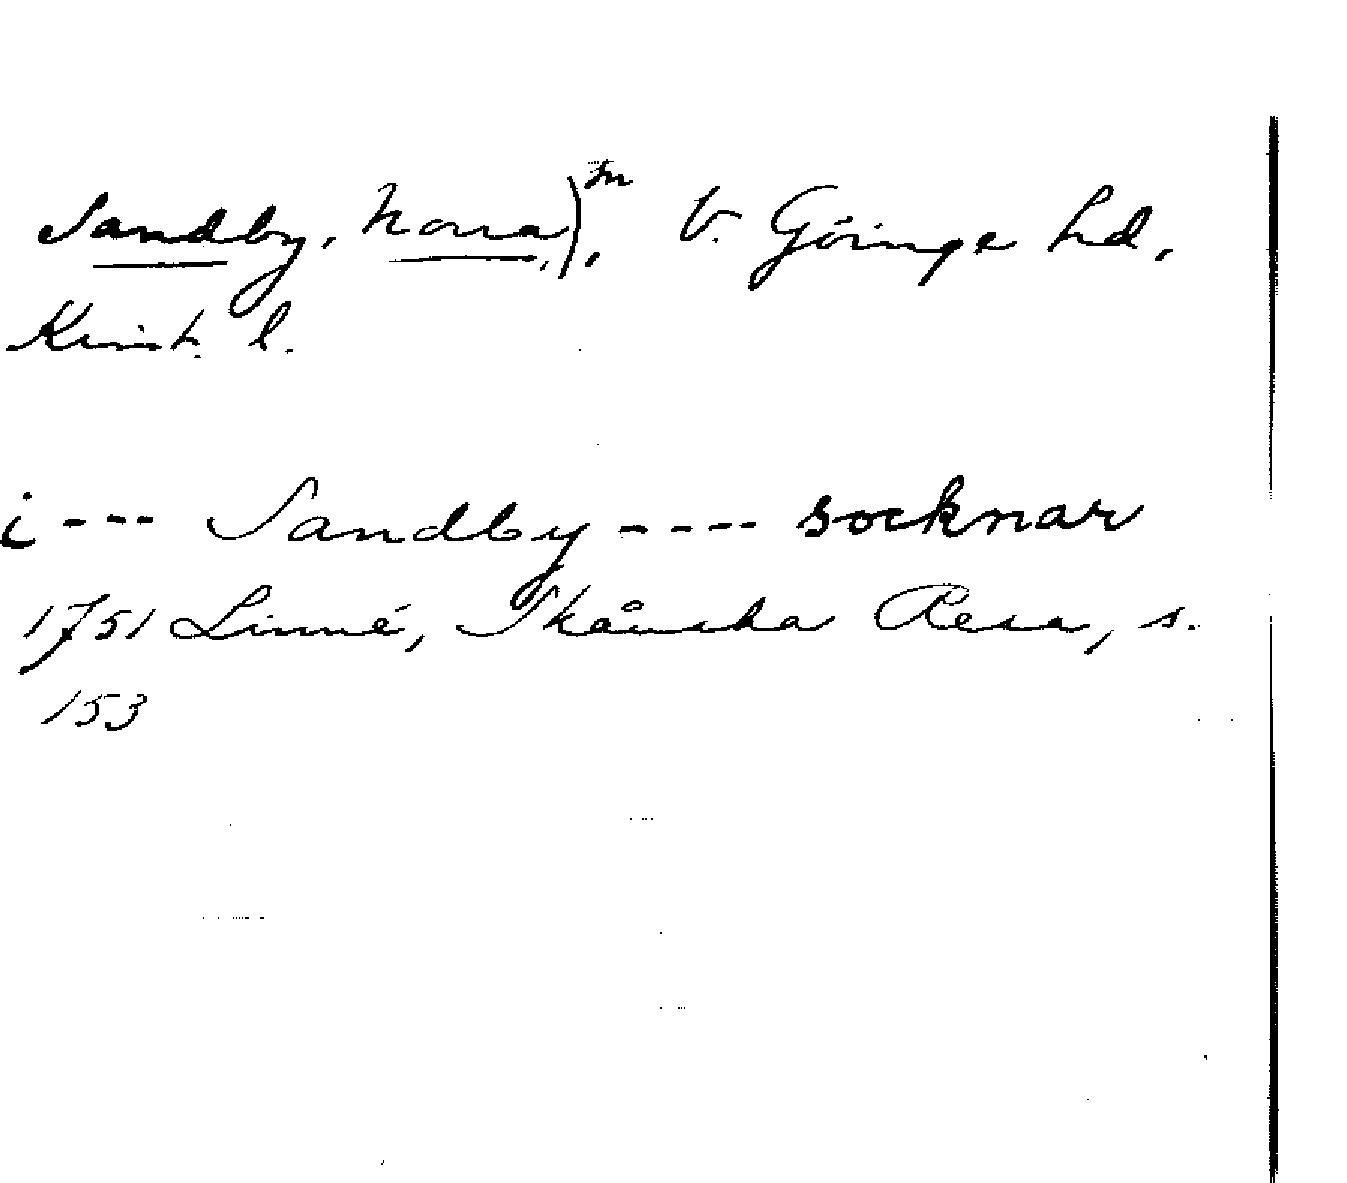 Sandby, Norra,)m, V. Göinge hd,
Krist. l.
i --- Sandby ---- socknar
1751 Linné, Skånska Resa, s.
153